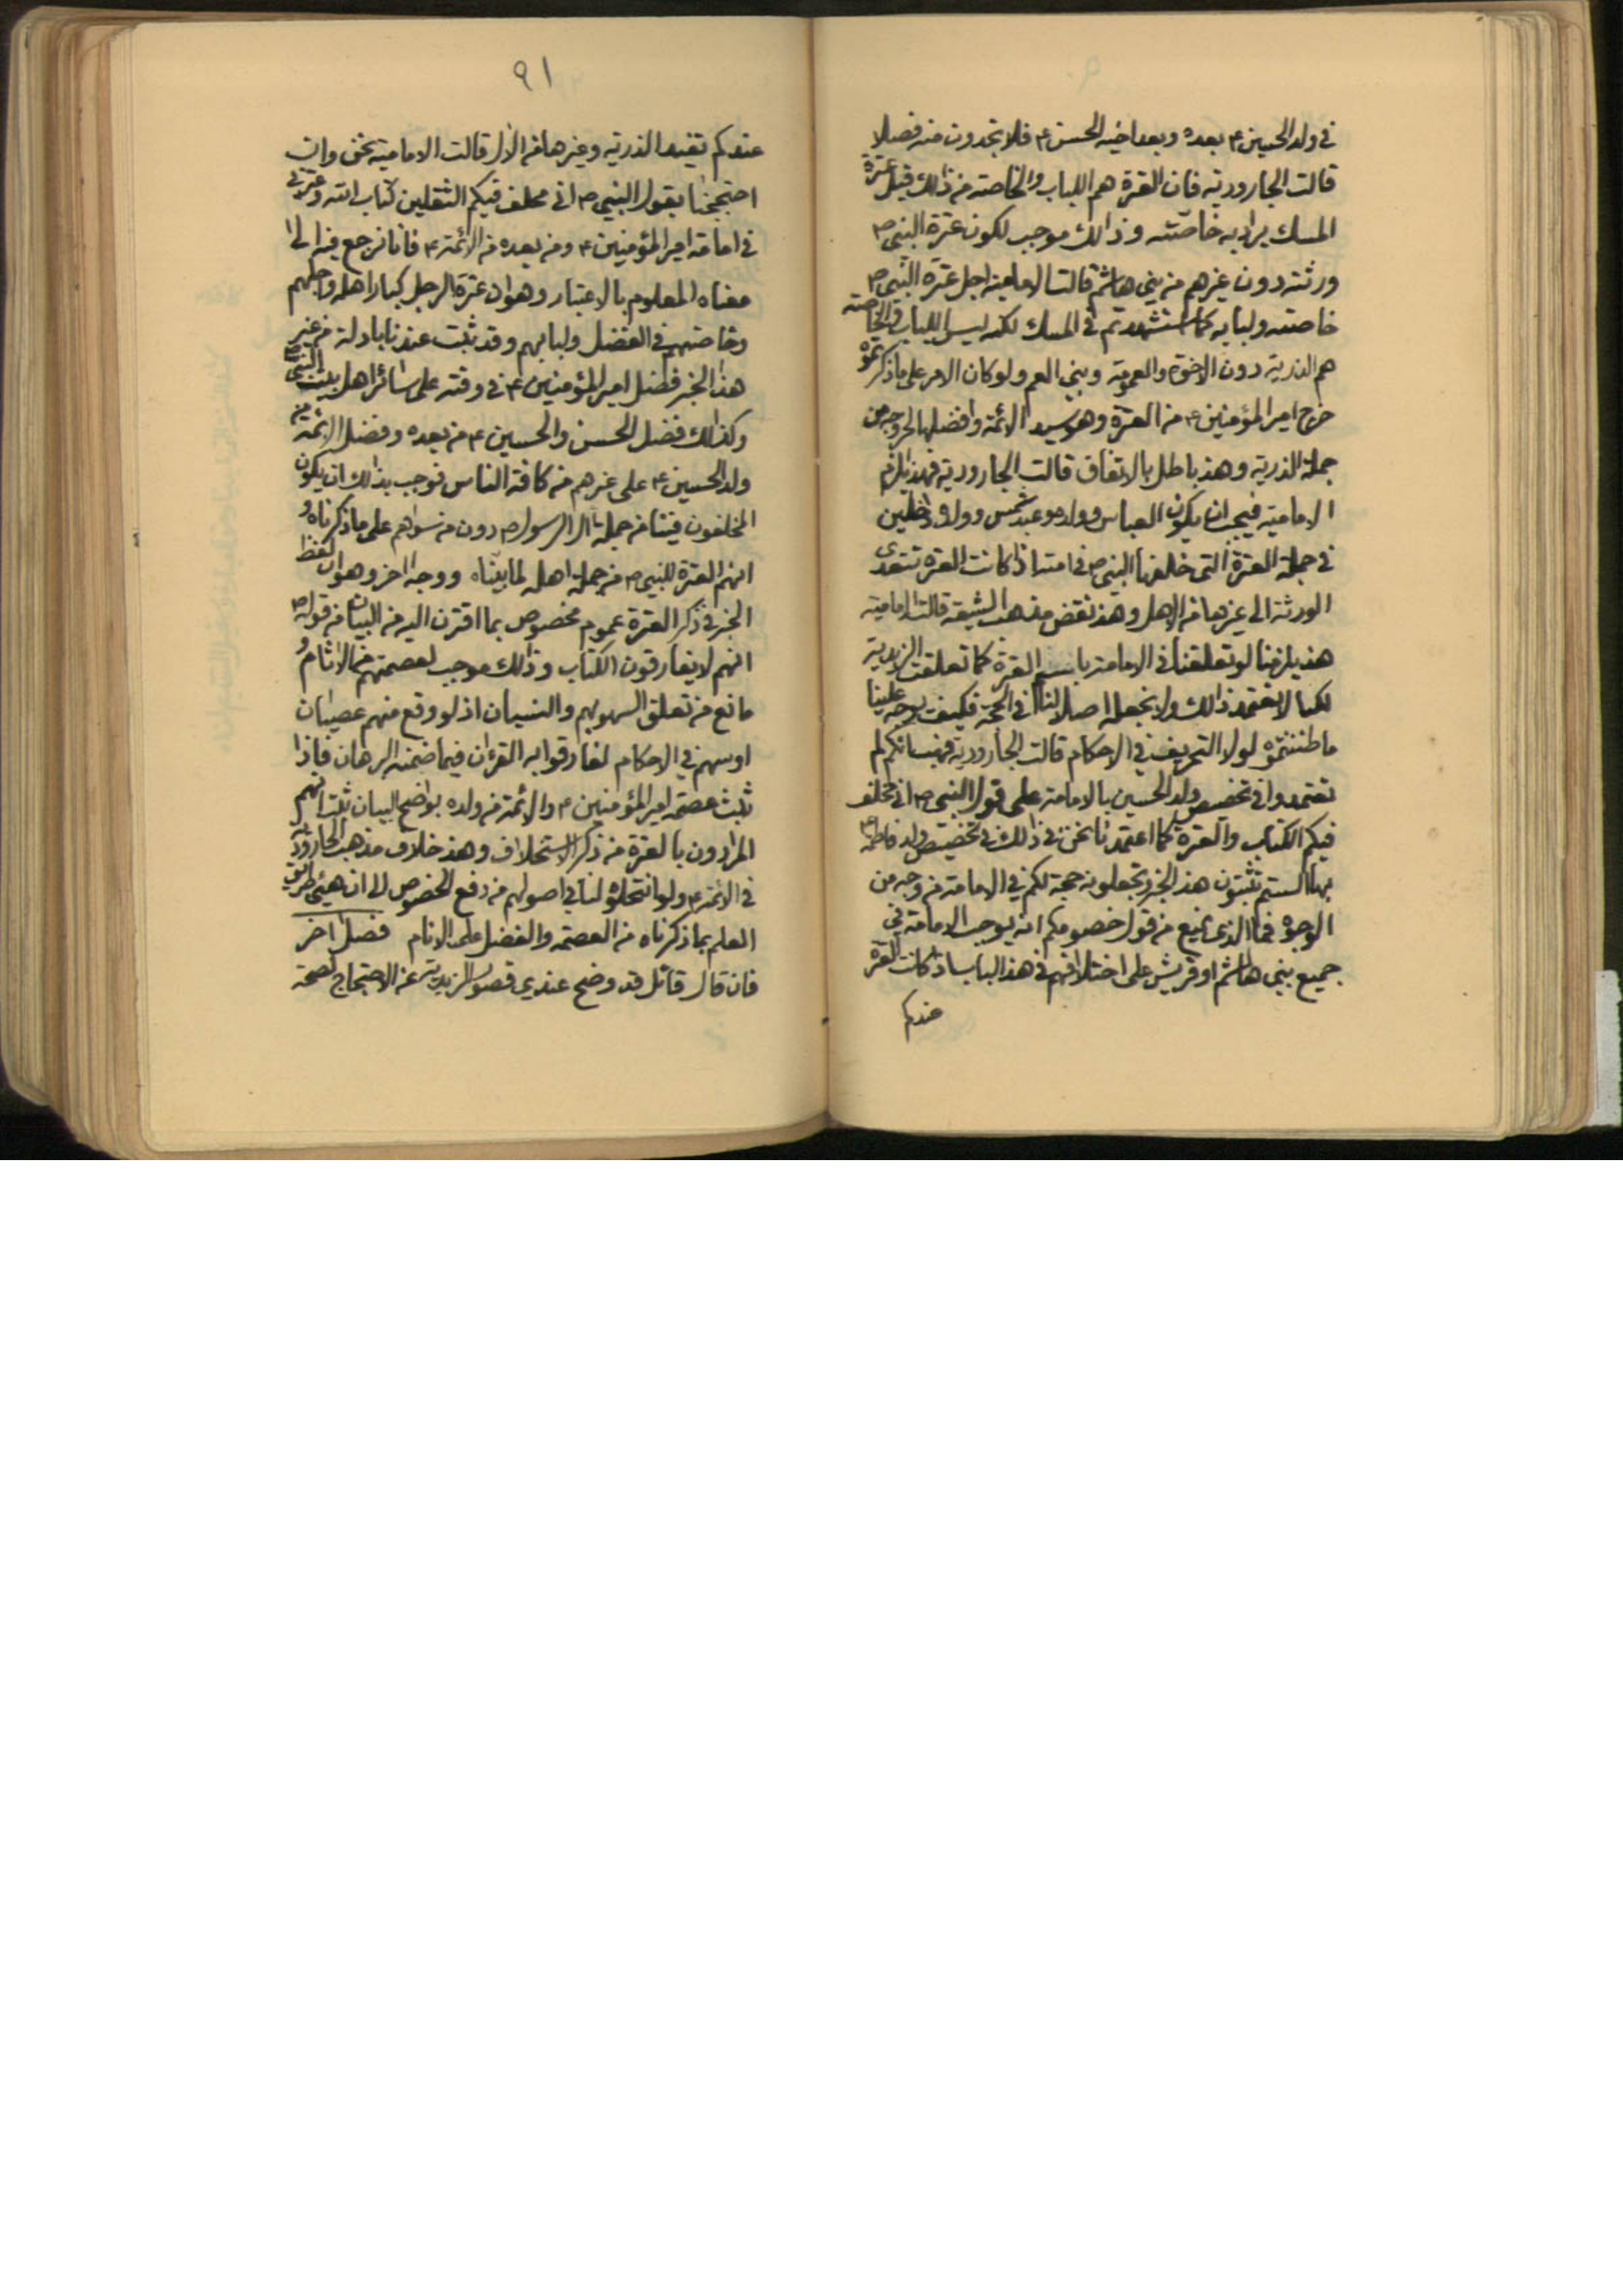 في ولد الحسين ع بعده وبعد اخيه الحسن ع فلا تجدون منه فصلا
قالت الجارودية فان العترة هم اللباب والخاصة من ذالك قيل عترة
المسك يراد به خاصته وذالك موجب لكون عترة النبي ص
ورثته دون غيرهم من بني هاشم قالت الامامية اجل عترة النبي ص
خاصته ولبابه كما استشهدتم في المسك لكنه ليس اللباب والخاصة
هم الذرية دون الاخوة والعمومة وبني العم ولو كان الامر على ما ذكرتموه
خرج امير المؤمنين ع من العترة وهو سيد الائمة وافضلها لخروجه من
جملة الذرية وهذ باطل بالاتفاق قالت الجارودية فهذ يلزم
الامامية فيجب ان يكون العباس وولده وعبد شمس وولده داخلين
في جملة العترة التي خلفها النبي ص في امته اذا كانت العترة تتعدى
الورثة الى غيرها من الاهل وهذ نقض مذهب الشيعة قالت الامامية
هذ يلزمنا لو تعلقنا في الامامة باسم العترة كما تعلقت الزيدية
لكنا لا نعتمد ذالك ولا نجعله اصلا لنا في الحجة فكيف يوجه علينا
ما ظننتموه لولا التحريف في الاحكام قالت الجارودية فهبسانكم لم
تعتمدوا في تخصيص ولد الحسين بالامامة على قول النبي ص اني مخلف
فيكم الكتاب والعترة كما اعتمدنا نحن في ذالك في تخصيص ولد فاطمة ع
بها الستم تثبتون هذ الخبر وتجعلونه حجة لكم في الامامة من وجه من
الوجوه فما الذي يمنع من قول خصومكم انه يوجب الامامة في
جميع بني هاشم او قريش على اختلافهم في هذ الباب اذا كانت العترة
عندكم
٩١
عندكم تفيد الذرية وغيرها من الال قالت الامامية نحن وان
احتججنا بقول النبي ص اني مخلف فيكم الثقلين كتاب الله وعترتي
في امامة امير المؤمنين ع ومن بعده من الائمة ع فانا نرجع فيه الى
معناه المعلوم بالاعتبار وهو ان عترة الرجل كبار اهله واجلهم
وخاصتهم في الفضل ولبابهم وقد ثبت عندنا بادلة من غير
هذ الخبر فضل امير المؤمنين ع في وقته على سائر اهل بيت النبي ص
وكذالك فضل الحسن والحسين ع من بعده وفضل الائمة من
ولد الحسين ع على غيرهم من كافة الناس فوجب بذالك ان يكون
المخلفون فينا من جملة ال الرسول ص دون من سواهم على ما ذكرناه و
انهم العترة للنبي ص من جملة اهله لما بيناه ووجه اخر وهو ان لفظ
الخبر في ذكر العترة عموم مخصوص بما اقترن اليه من البيان من قوله ص
انهم لا يفارقون الكتاب وذالك موجب لعصمتهم من الاثام و
مانع من تعلق السهو بهم والنسيان اذ لو وقع منهم عصيان
او سهو في الاحكام لفارقوا به القرءان فيما ضمنه البرهان فاذا
ثبت عصمة امير المؤمنين ع والائمة من ولده بواضح البيان ثبت انهم
المرادون بالعترة من ذكر الاستخلاف وهذ خلاف مذهب الجارودية
في الائمة ع ولو انتحلوه لنا في اصولهم من دفع الخصوص الى ان هيئ طريق
العلم بما ذكرناه من العصمة والفضل على الانام فصل آخر
فان قال قائل قد وضح عندي قصور الزيدية عن الاحتجاج لصحة